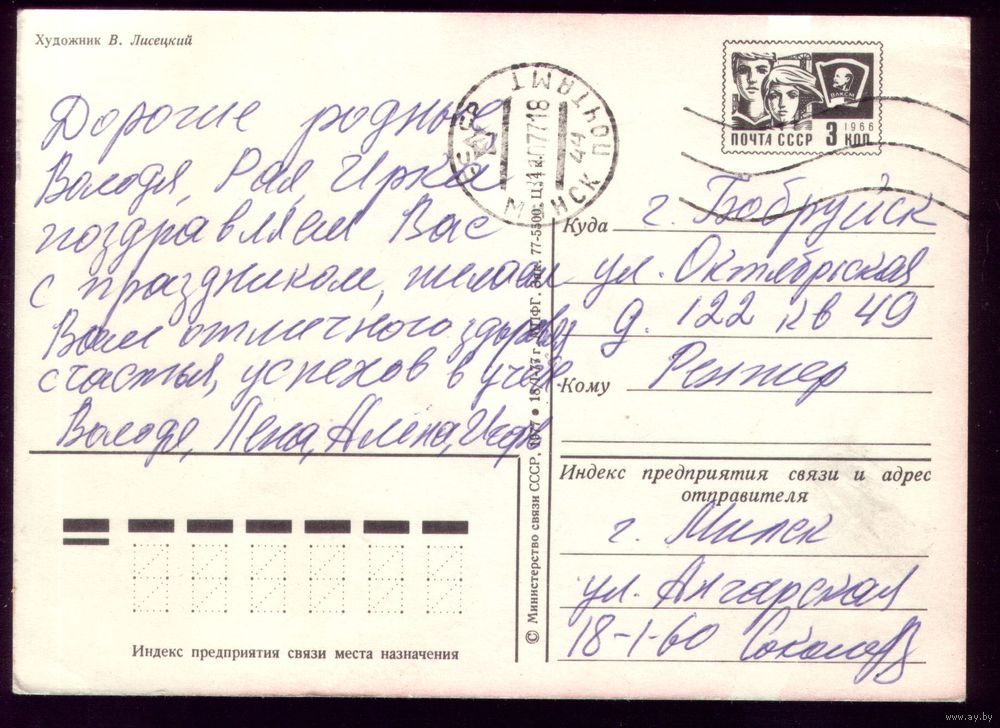 Художник В. Лисецкий
Дорогие родные
Володя, Рая, Ирка
поздравляем Вас
с праздником, желаем
Вам отличного здоровья
счастья, успехов в учебе.
Володя, Лена, Алёна,
СССР
МИНСК
ПОЧТАМТ
ПОЧТА СССР 3 КОП.
1966
ВЛКСМ
Куда г. Бобруйск
ул. Октябрьская
д. 122 кв 49
Кому
Индекс предприятия связи и адрес
отправителя
г. Минск
ул. Ангарская
18-1-60
© Министерство связи СССР, 1977 • 18/I-77 г.
Индекс предприятия связи места назначения
www.ay.by